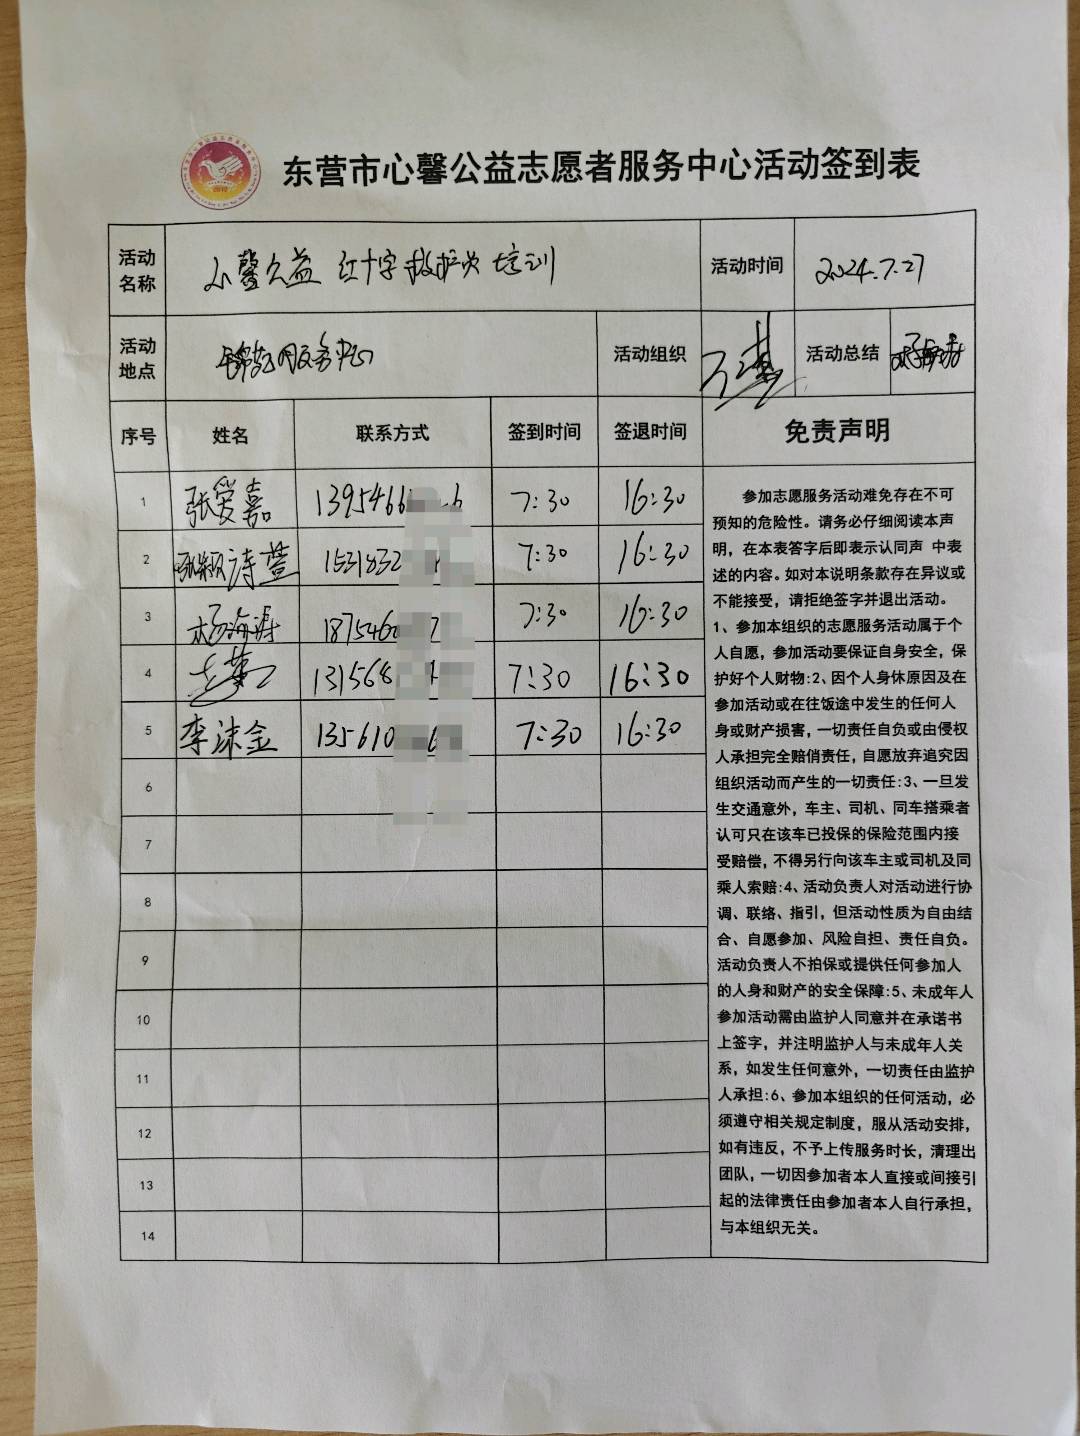 东营市心馨公益志愿者服务中心活动签到表
活动名称 心馨公益 红十字救护员培训 活动时间 2024.7.27
活动地点 服务中心 活动组织 活动总结
序号 姓名 联系方式 签到时间 签退时间 免责声明
1 张爱嘉 1395466 6 7:30 16:30
2 诗萱 1531832 7:30 16:30
3 杨 涛 1875460 7 7:30 16:30
4 131568 7:30 16:30
5 李沫金 135610 6 7:30 16:30
6
7
8
9
10
11
12
13
14
参加志愿服务活动难免存在不可
预知的危险性。请务必仔细阅读本声
明，在本表答字后即表示认同声 中表
述的内容。如对本说明条款存在异议或
不能接受，请拒绝签字并退出活动。
1、参加本组织的志愿服务活动属于个
人自愿，参加活动要保证自身安全，保
护好个人财物:2、因个人身休原因及在
参加活动或在往饭途中发生的任何人
身或财产损害，一切责任自负或由侵权
人承担完全赔俏责任，自愿放弃追究因
组织活动而产生的一切责任:3、一旦发
生交通意外，车主、司机、同车搭乘者
认可只在该车已投保的保险范围内接
受赔偿，不得另行向该车主或司机及同
乘人索赔:4、活动负责人对活动进行协
调、联络、指引，但活动性质为自由结
合、自愿参加、风险自担、责任自负。
活动负责人不拍保或提供任何参加人
的人身和财产的安全保障:5、未成年人
参加活动需由监护人同意并在承诺书
上签字，并注明监护人与未成年人关
系，如发生任何意外，一切责任由监护
人承担:6、参加本组织的任何活动，必
须遵守相关规定制度，服从活动安排，
如有违反，不予上传服务时长，清理出
团队，一切因参加者本人直接或间接引
起的法律责任由参加者本人自行承担，
与本组织无关。